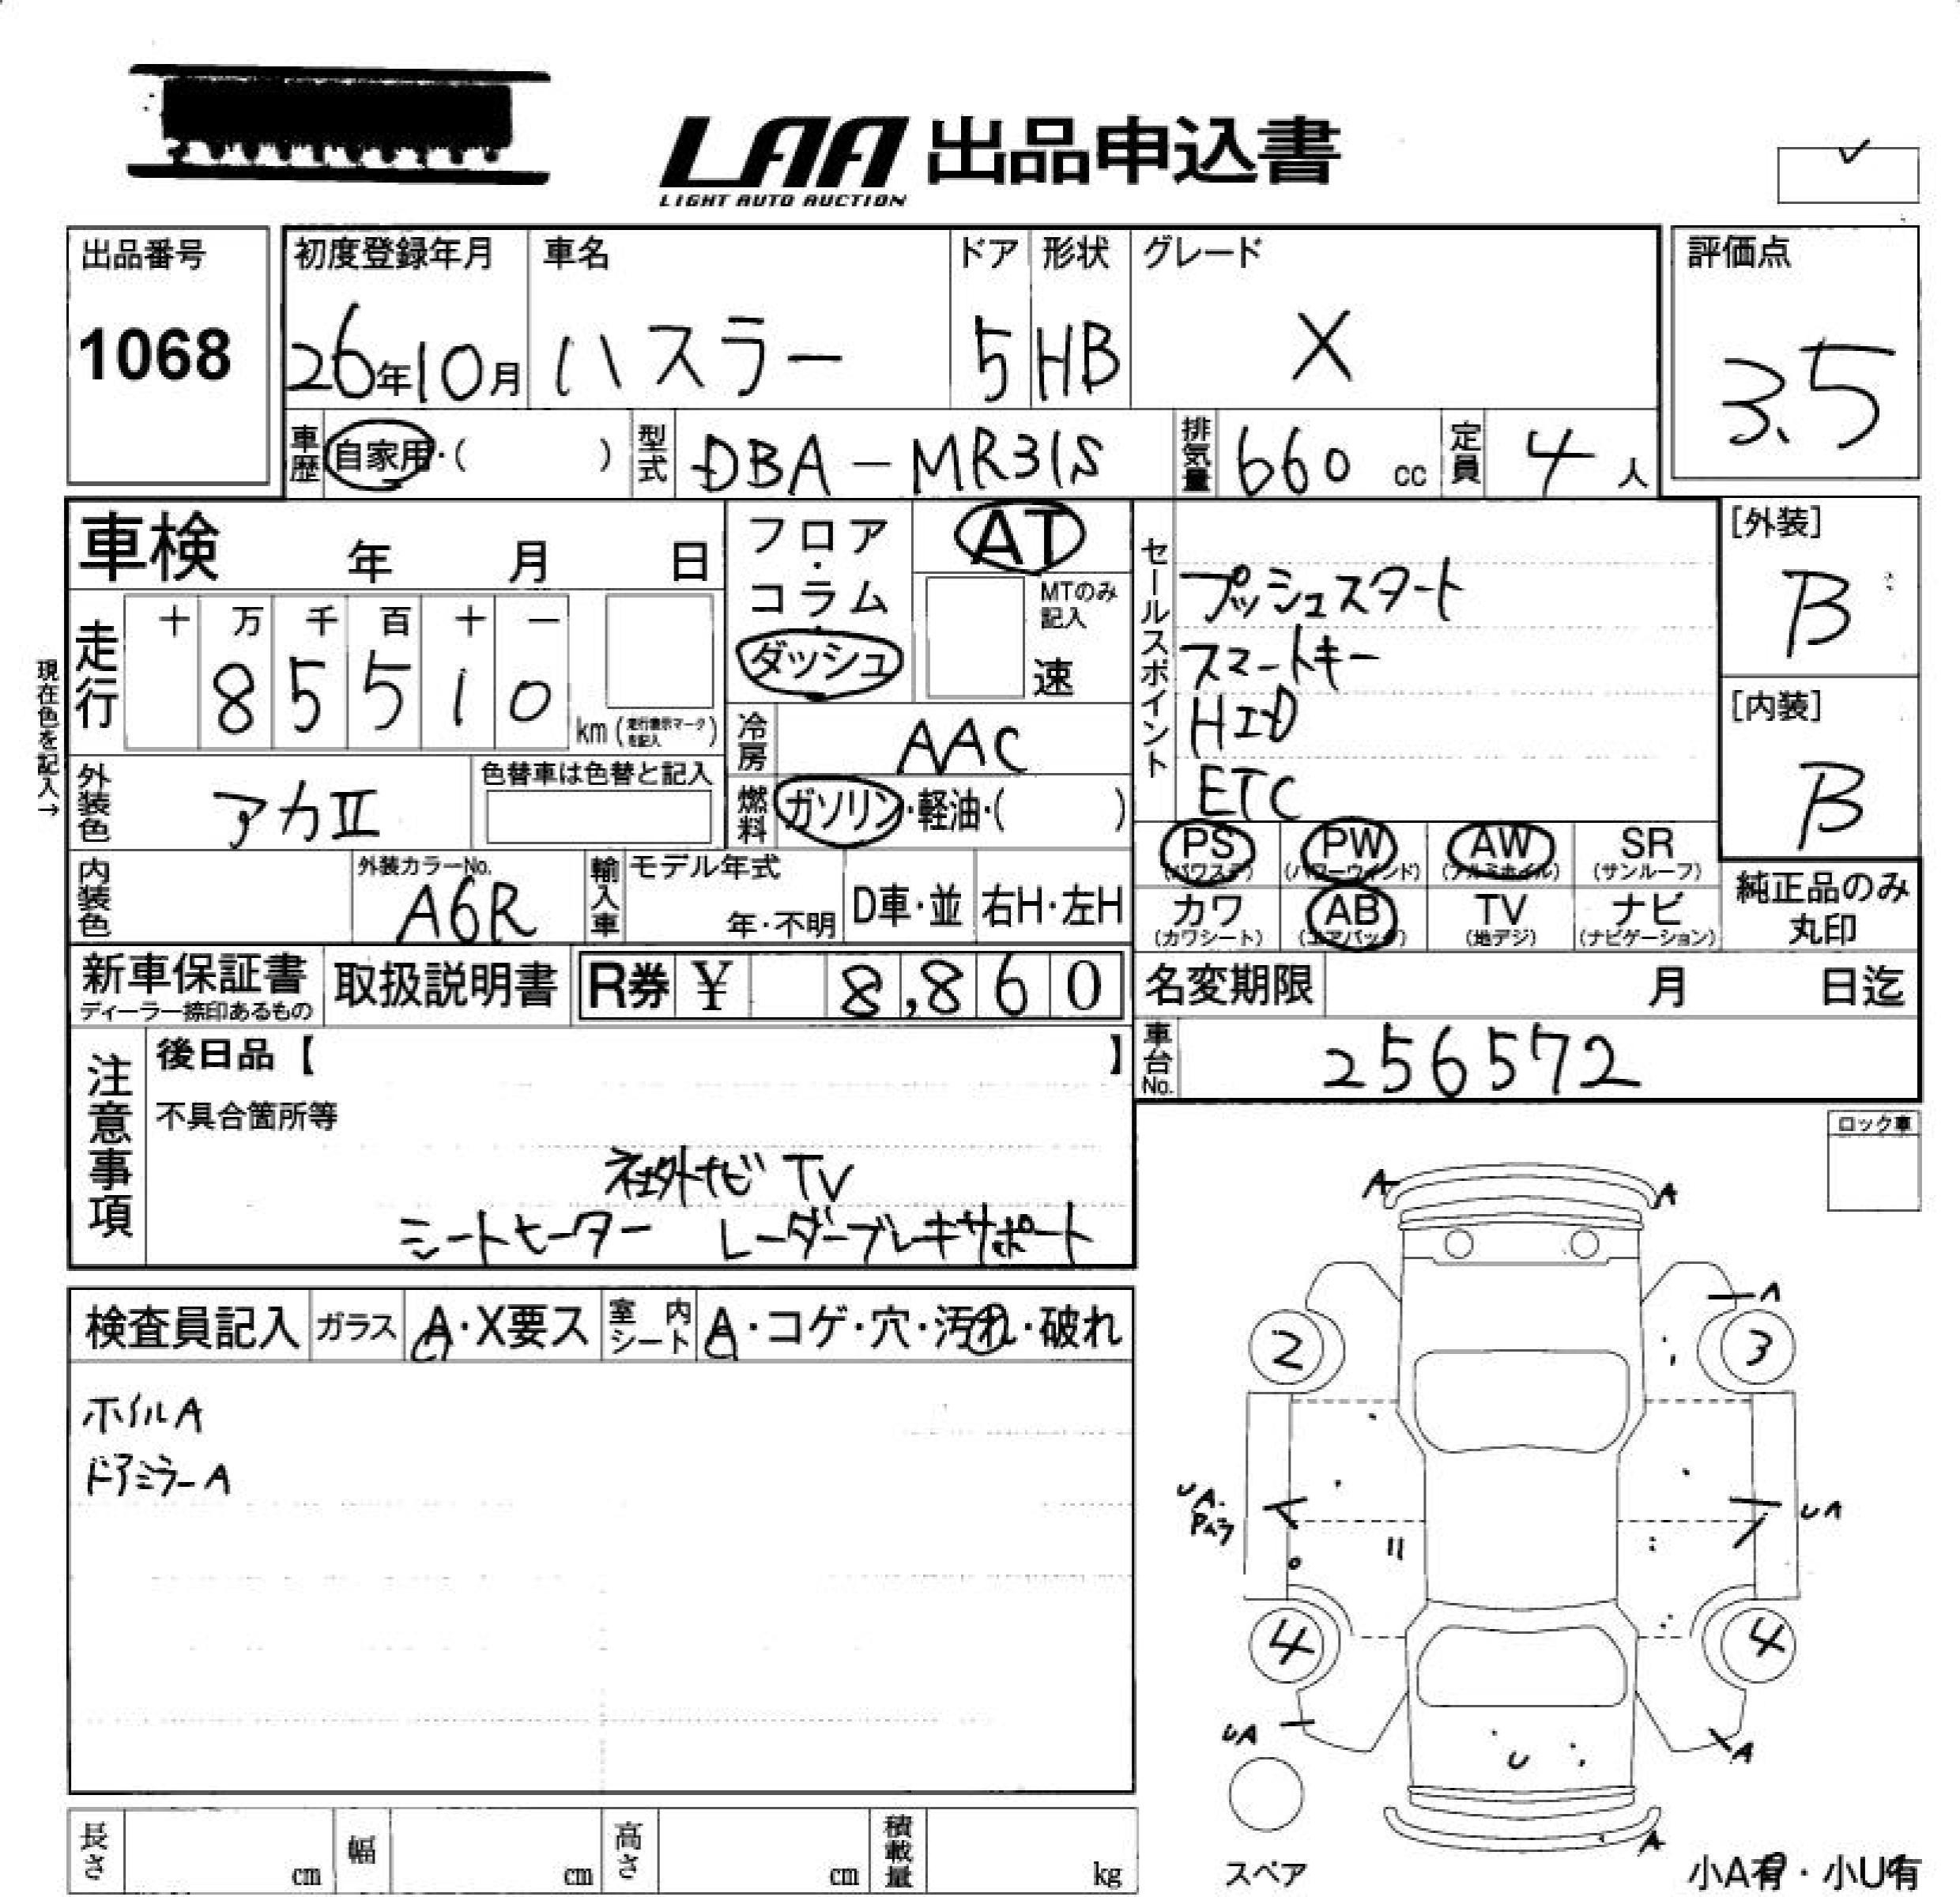 LAA 出品申込書
LIGHT AUTO AUCTION
出品番号
1068
初度登録年月
26年10月
車名
ハスラー
ドア
5
形状
HB
グレード
X
評価点
3.5
車歴 自家用・( )
型式 DBA-MR31S
排気量 660 cc
定員 4 人
車検 年 月 日
フロア・コラム・ダッシュ
AT
MTのみ記入
速
セールスポイント
プッシュスタート
スマートキー
HID
ETC
[外装]
B
[内装]
B
現在色を記入→
走行 十 万 千 百 十 一
8 5 5 1 0
km (走行表示マークを記入)
冷房 AAC
外装色 アカII
色替車は色替と記入
燃料 ガソリン・軽油・( )
PS (パワステ) PW (パワーウィンド) AW (アルミホイル) SR (サンルーフ)
カワ (カワシート) AB (エアバック) TV (地デジ) ナビ (ナビゲーション)
純正品のみ
丸印
内装色
外装カラーNo.
A6R
輸入車 モデル年式
年・不明
D車・並
右H・左H
新車保証書
ディーラー捺印あるもの
取扱説明書
R券 ¥ 8,860
名変期限 月 日迄
車台No. 256572
注意事項
後日品【 】
不具合箇所等
社外ナビ TV
シートヒーター レーダーブレーキサポート
ロック車
検査員記入 ガラス A・X要ス 室内シート A・コゲ・穴・汚れ・破れ
ホイルA
ドアミラーA
A A
A
2 3
UA. UA
4 4
UA A
U
A
スペア
小A有・小U有
長さ cm 幅 cm 高さ cm 積載量 kg